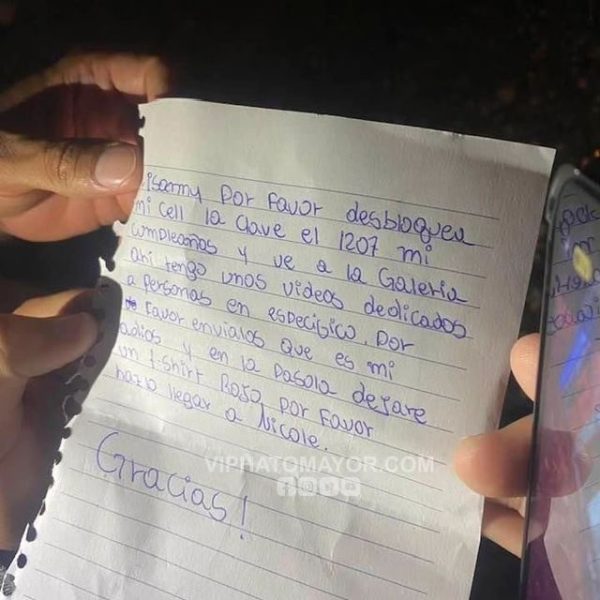 isamy por favor desbloquea
mi cell la clave el 1207 mi
cumpleaños y ve a la Galeria
ahi tengo unos videos dedicados
a personas en especisico. por
favor envialos que es mi
adios y en la pasola dejare
un t-shirt Rojo por favor
hazlo llegar a Nicole.
Gracias!
VIPHATOMAYOR.COM